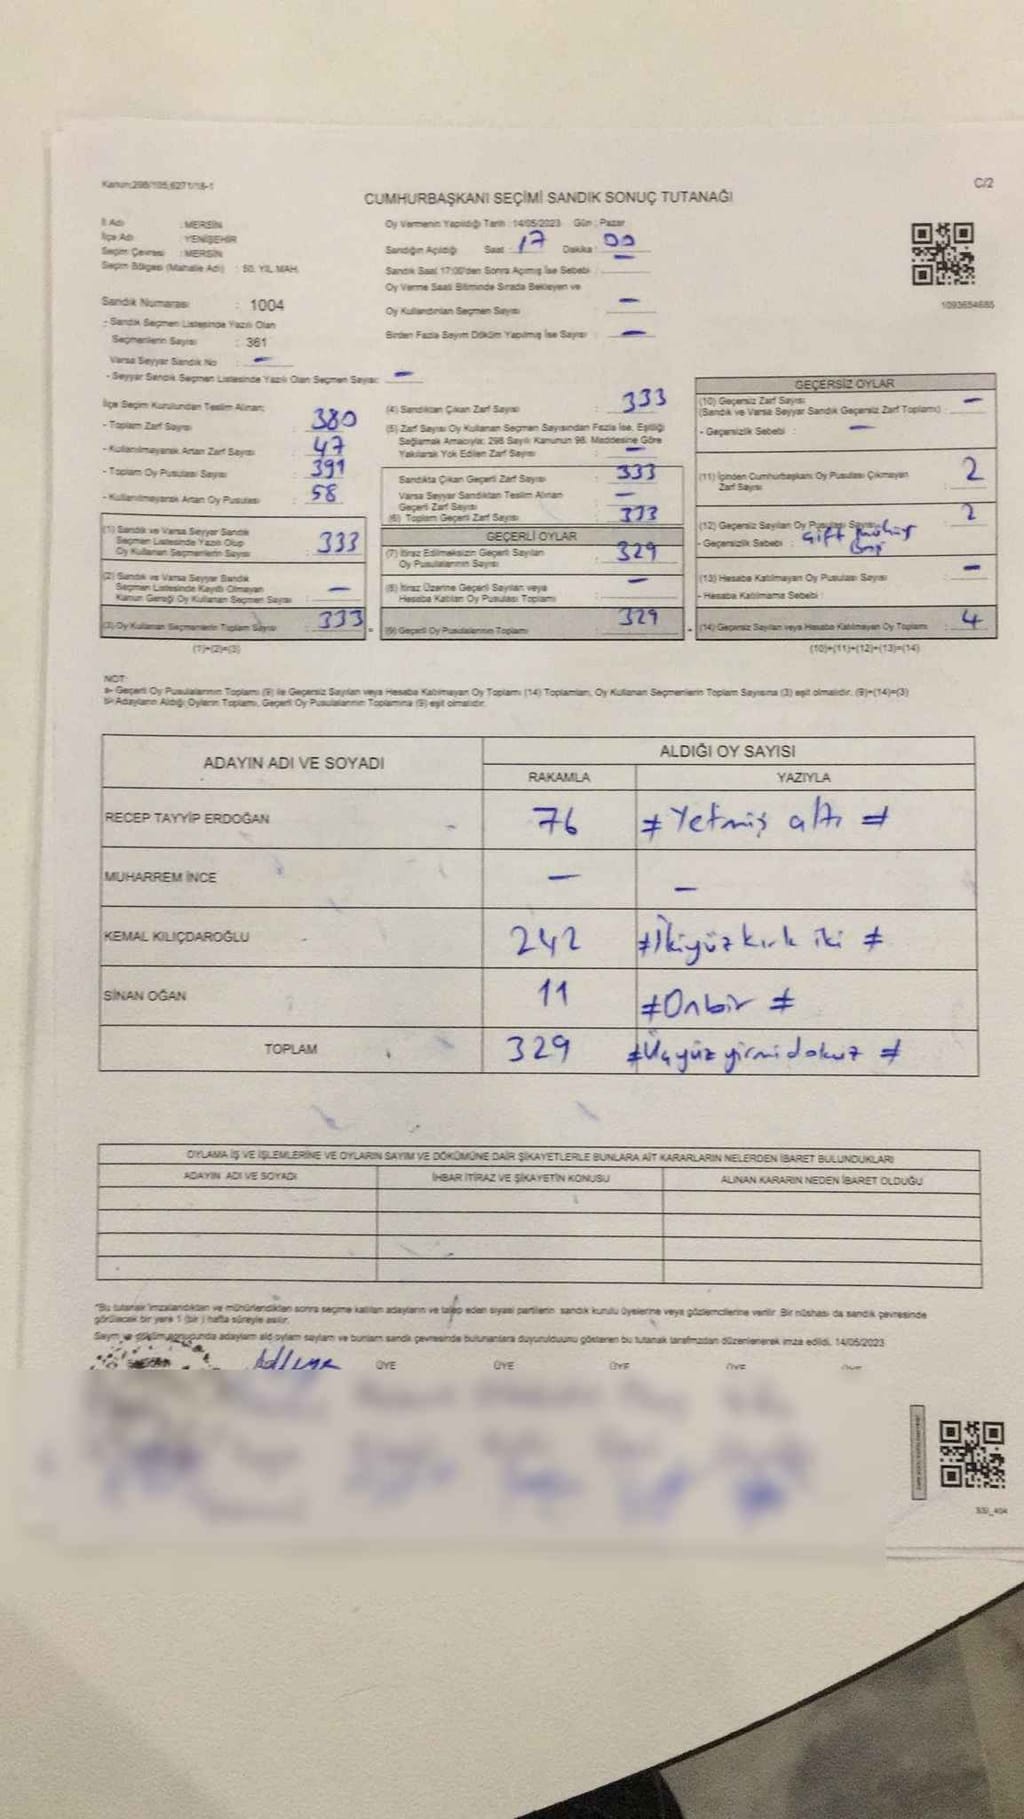 Kanun:298/105,6271/18-1
C/2
CUMHURBAŞKANI SEÇİMİ SANDIK SONUÇ TUTANAĞI
İl Adı : MERSİN
İlçe Adı : YENİŞEHİR
Seçim Çevresi : MERSİN
Seçim Bölgesi (Mahalle Adı) : 50. YIL MAH.
Sandık Numarası : 1004
- Sandık Seçmen Listesinde Yazılı Olan
Seçmenlerin Sayısı : 361
Varsa Seyyar Sandık No : –
- Seyyar Sandık Seçmen Listesinde Yazılı Olan Seçmen Sayısı: –
Oy Vermenin Yapıldığı Tarih : 14/05/2023 Gün : Pazar
Sandığın Açıldığı Saat : 17 Dakika : 00
Sandık Saat 17:00'den Sonra Açılmış İse Sebebi : –
Oy Verme Saati Bitiminde Sırada Bekleyen ve
Oy Kullandırılan Seçmen Sayısı : –
Birden Fazla Sayım Döküm Yapılmış İse Sayısı : –
1093654685
İlçe Seçim Kurulundan Teslim Alınan;
- Toplam Zarf Sayısı : 380
- Kullanılmayarak Artan Zarf Sayısı : 47
- Toplam Oy Pusulası Sayısı : 391
- Kullanılmayarak Artan Oy Pusulası : 58
(1) Sandık ve Varsa Seyyar Sandık
Seçmen Listesinde Yazılı Olup
Oy Kullanan Seçmenlerin Sayısı : 333
(2) Sandık ve Varsa Seyyar Sandık
Seçmen Listesinde Kayıtlı Olmayan
Kanun Gereği Oy Kullanan Seçmen Sayısı : –
(3) Oy Kullanan Seçmenlerin Toplam Sayısı : 333
(1)+(2)=(3)
(4) Sandıktan Çıkan Zarf Sayısı : 333
(5) Zarf Sayısı Oy Kullanan Seçmen Sayısından Fazla İse, Eşitliği
Sağlamak Amacıyla; 298 Sayılı Kanunun 98. Maddesine Göre
Yakılarak Yok Edilen Zarf Sayısı : –
Sandıkta Çıkan Geçerli Zarf Sayısı : 333
Varsa Seyyar Sandıktan Teslim Alınan
Geçerli Zarf Sayısı : –
(6) Toplam Geçerli Zarf Sayısı : 333
GEÇERLİ OYLAR
(7) İtiraz Edilmeksizin Geçerli Sayılan
Oy Pusulalarının Sayısı : 329
(8) İtiraz Üzerine Geçerli Sayılan veya
Hesaba Katılan Oy Pusulası Toplamı : –
(9) Geçerli Oy Pusulalarının Toplamı : 329
GEÇERSİZ OYLAR
(10) Geçersiz Zarf Sayısı : –
(Sandık ve Varsa Seyyar Sandık Geçersiz Zarf Toplamı)
- Geçersizlik Sebebi : –
(11) İçinden Cumhurbaşkanı Oy Pusulası Çıkmayan
Zarf Sayısı 2
(12) Geçersiz Sayılan Oy Pusulası Sayısı 2
- Geçersizlik Sebebi : Çift mühür
(13) Hesaba Katılmayan Oy Pusulası Sayısı –
- Hesaba Katılmama Sebebi :
(14) Geçersiz Sayılan veya Hesaba Katılmayan Oy Toplamı : 4
(10)+(11)+(12)+(13)=(14)
NOT:
a- Geçerli Oy Pusulalarının Toplamı (9) ile Geçersiz Sayılan veya Hesaba Katılmayan Oy Toplamı (14) Toplamları, Oy Kullanan Seçmenlerin Toplam Sayısına (3) eşit olmalıdır. (9)+(14)=(3)
b- Adayların Aldığı Oyların Toplamı, Geçerli Oy Pusulalarının Toplamına (9) eşit olmalıdır.
ADAYIN ADI VE SOYADI
ALDIĞI OY SAYISI
RAKAMLA YAZIYLA
RECEP TAYYİP ERDOĞAN 76 ≠ Yetmiş altı ≠
MUHARREM İNCE – –
KEMAL KILIÇDAROĞLU 242 ≠ İkiyüz kırk iki ≠
SİNAN OĞAN 11 ≠ Onbir ≠
TOPLAM 329 ≠ Üçyüz yirmi dokuz ≠
OYLAMA İŞ VE İŞLEMLERİNE VE OYLARIN SAYIM VE DÖKÜMÜNE DAİR ŞİKAYETLERLE BUNLARA AİT KARARLARIN NELERDEN İBARET BULUNDUKLARI
ADAYIN ADI VE SOYADI İHBAR İTİRAZ VE ŞİKAYETİN KONUSU ALINAN KARARIN NEDEN İBARET OLDUĞU
*Bu tutanak imzalandıktan ve mühürlendikten sonra seçime katılan adayların ve talep eden siyasi partilerin sandık kurulu üyelerine veya gözlemcilerine verilir. Bir nüshası da sandık çevresinde
görülecek bir yere 1 (bir) hafta süreyle asılır.
Sayım ve döküm sonucunda adayların aldığı oyların sayılarını ve bunların sandık çevresinde bulunanlara duyurulduğunu gösteren bu tutanak tarafımızdan düzenlenerek imza edildi. 14/05/2023
ÜYE ÜYE ÜYE ÜYE